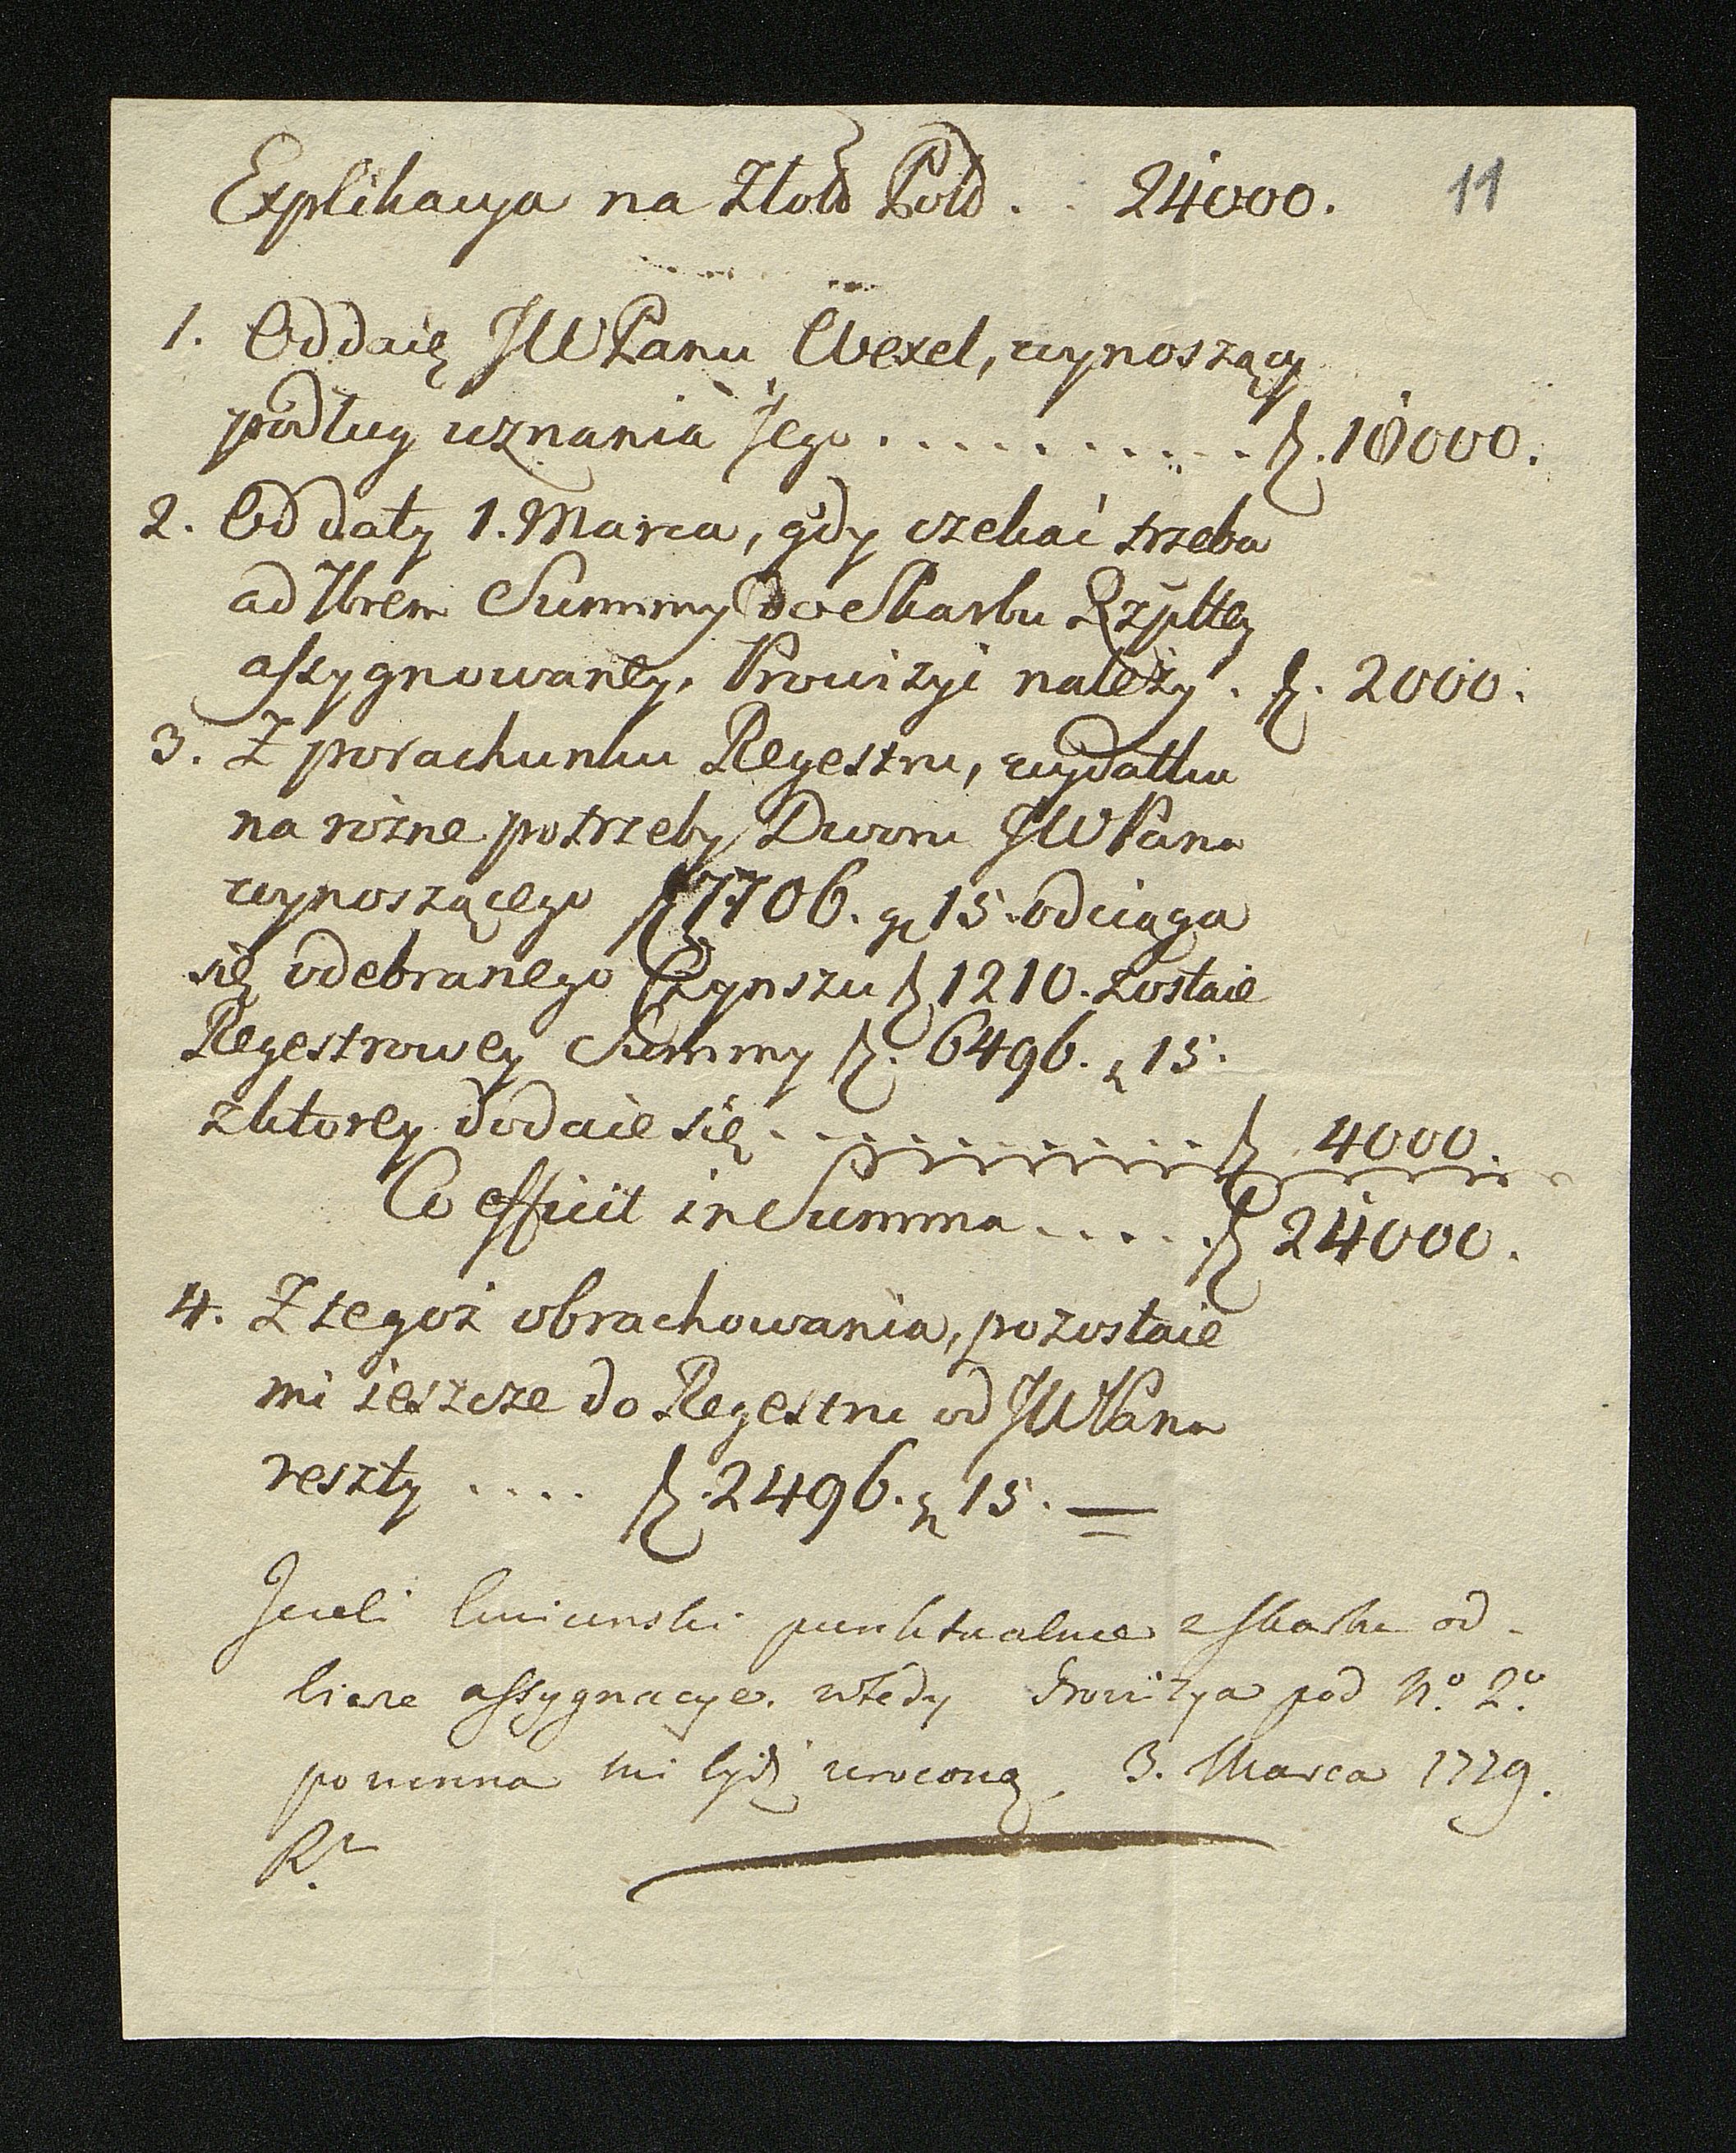 Explikacya na Złoł Pold . . 24000. 11
1. Oddaię JWPanu Wexel, wynoszący
podług uznania Jego . . . . . . . . . . . f. 18000.
2. Od daty 1. Marca, gdy czekać trzeba
ad 7brem Summy do Skarbu Rzpltey
assygnowaney. Prowizyi należy . f. 2000.
3. Z porachunku Regestru, wydatku
na rożne potrzeby Dworu JWPana
wynoszącego f 7706. gr 15. odciąga
się odebranego Czynszu f 1210. zostaie
Regestrowey Summy f. 6496. gr 15.
zktorey dodaie się . . . . . . . . . . f 4000.
Co efficit in Summa . . . . . f 24000.
4. Z tegoż obrachowania, pozostaie
mi ieszcze do Regestru od JWPana
reszty . . . . f. 2496. gr 15. —
Jezeli punktualnie z skarbu od-
bierze assygnacye. wtedy Prowizya pod No. 2o.
powinna mi bydź wrocona. 3. Marca 1779.